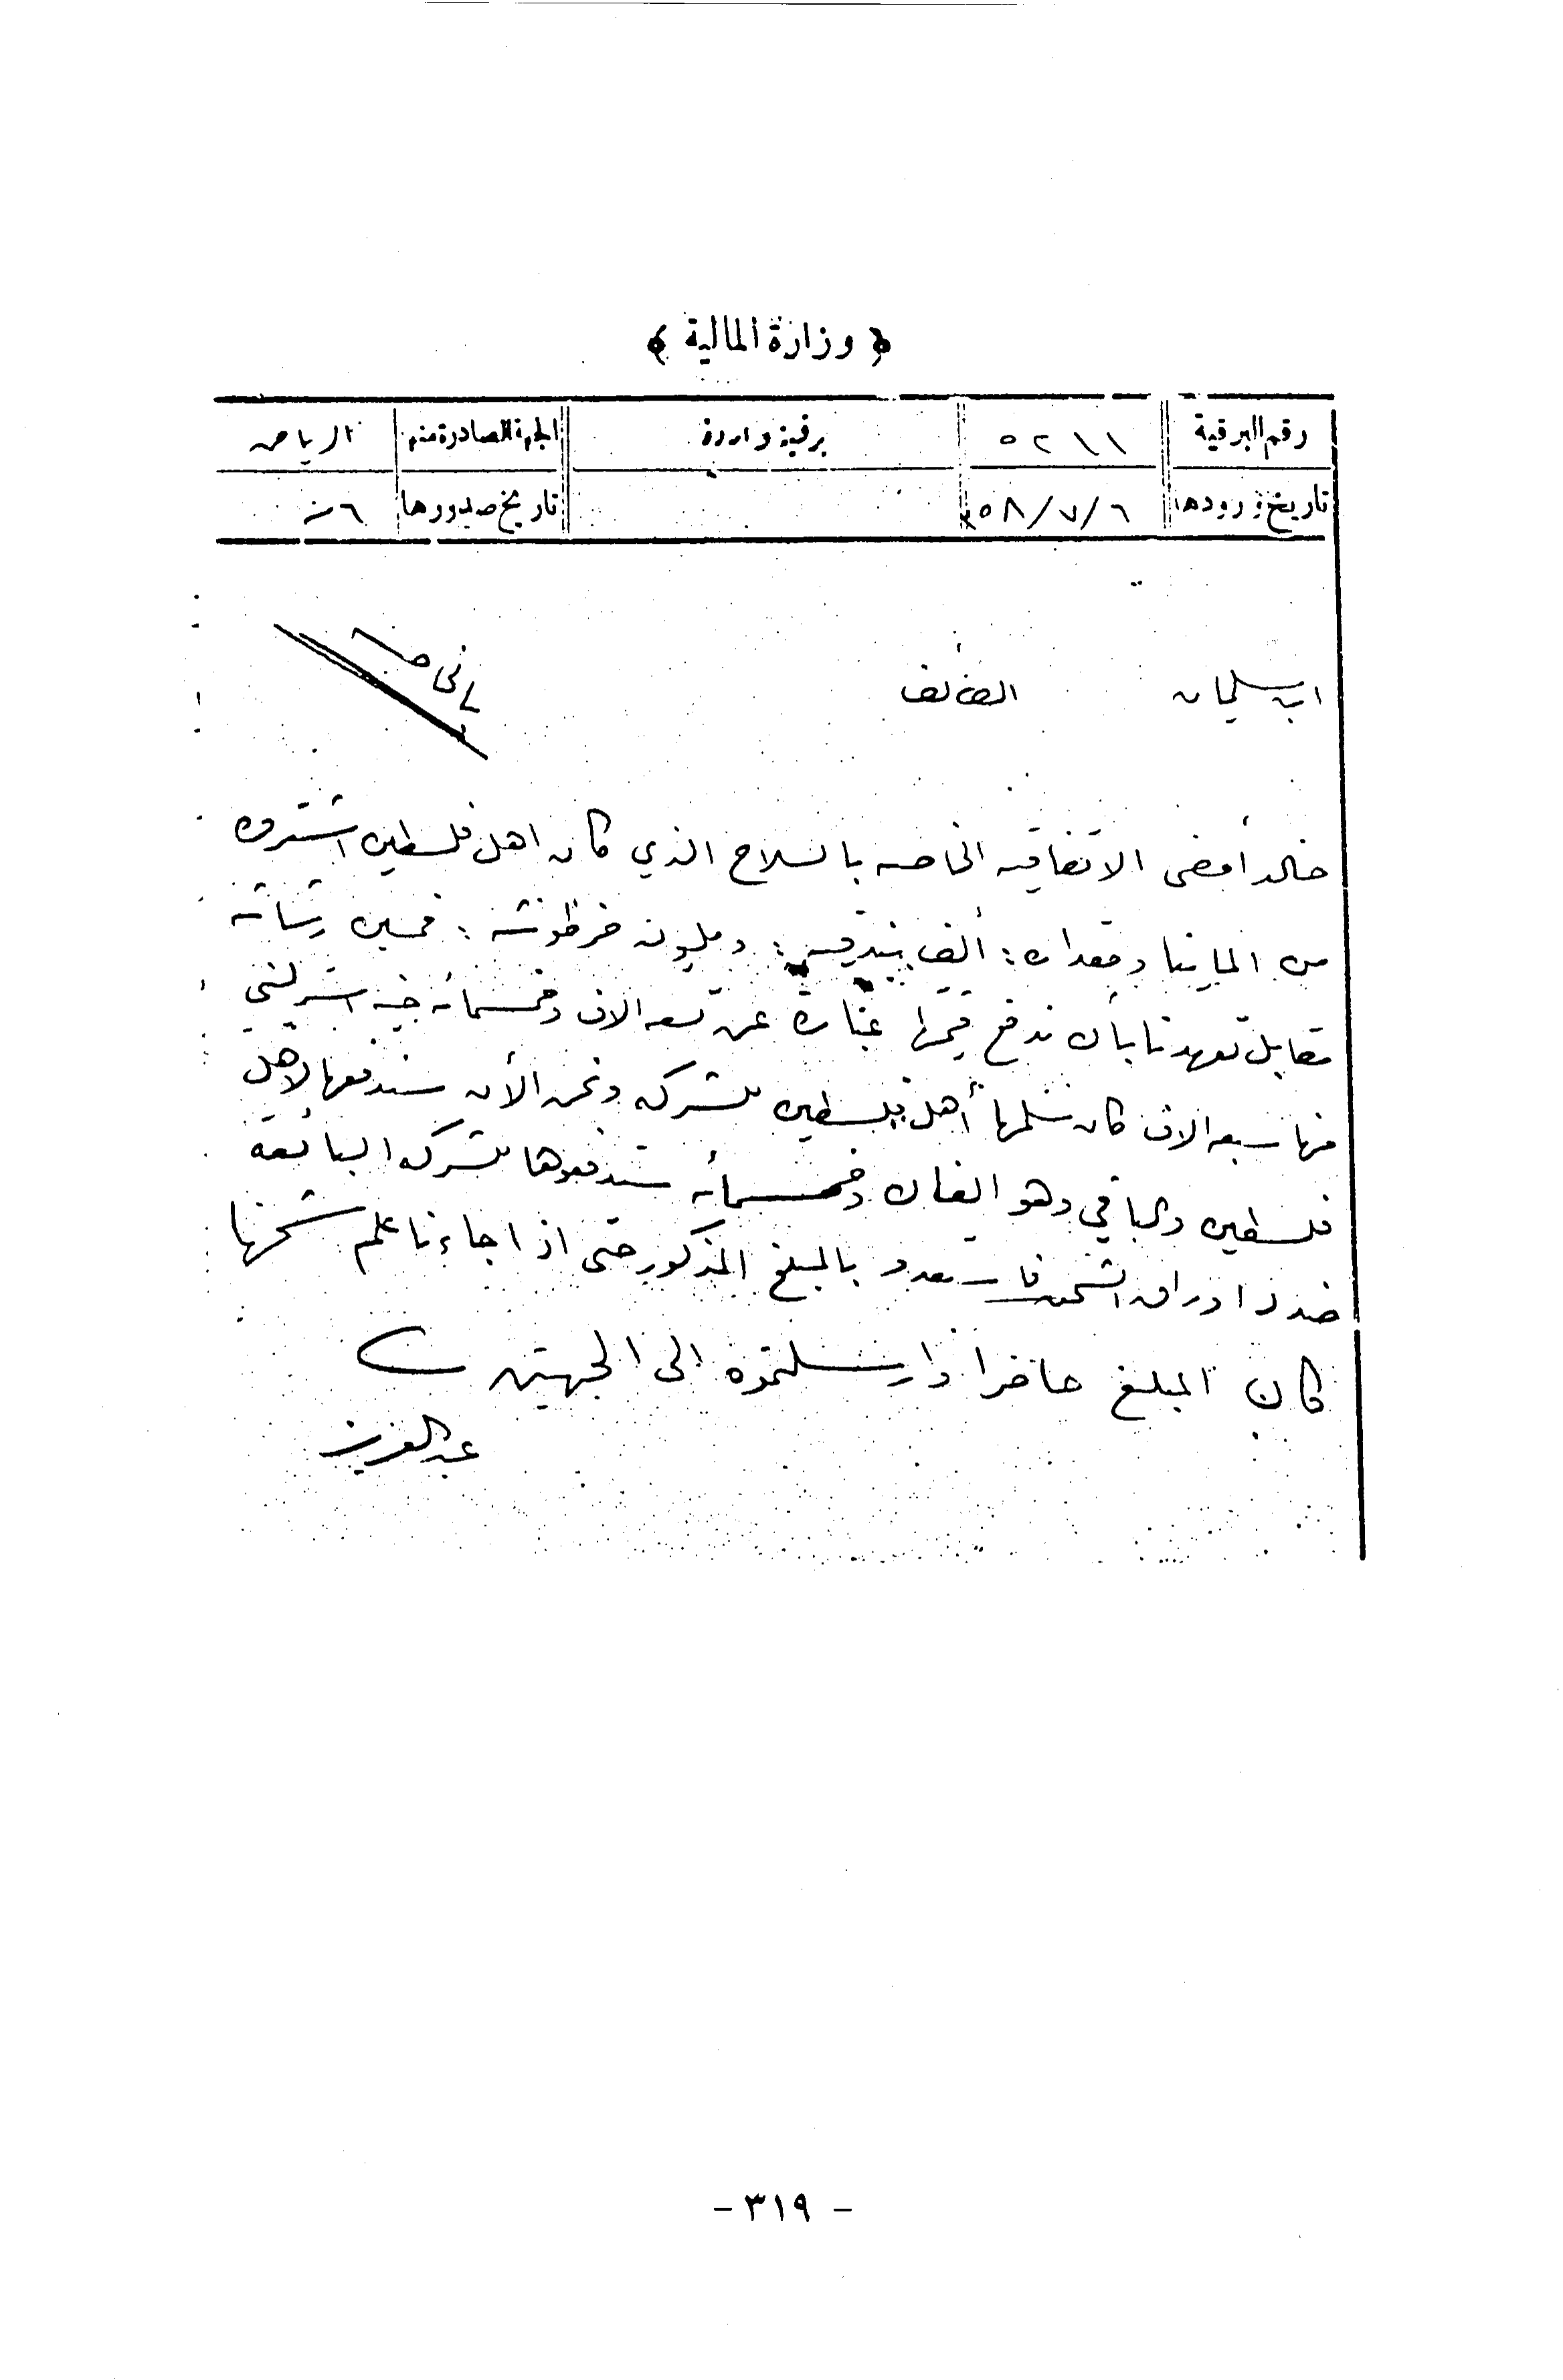 ﴿ وزارة المالية ﴾
رقم البرقية ٥٢١١ برقية واردة الجهة الصادرة منه الرياض
تاريخ ورودها ٥٨/٧/٦ تاريخ صدورها ٦ منه
ابن سليمان الطائف
خالد أمضى الاتفاقيه الخاصه بالسلاح الذي كان اهل فلسطين اشتروه
من المانيا ومقداره : ألف بندقيه : ومليون خرطوشه : خمسين رشاشه
مقابل تعهدنا بأن ندفع قيمتها عبارة عن تسعه الاف وخمسمائه جنيه استرليني
منها سبعه الاف كان سلمها أهل فلسطين للشركه ونحن الأن سندفعها لاهل
فلسطين والباقي وهو الفان وخمسمائه ستدفعوها للشركه البائعه
ضد اوراق الشحن فاستعدو بالمبلغ المذكور حتى اذا جاءنا علم شحنها
كان المبلغ حاضرا وارسلتموه الى الجهتين
عبدالعزيز
- ٣١٩ -